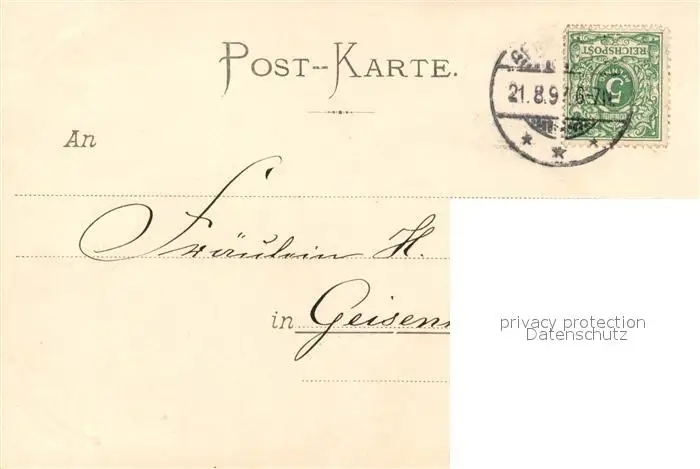 POST-KARTE.
REICHSPOST
5
21.8.97 6-7N
An
Fräulein H.
in Geisen
privacy protection
Datenschutz